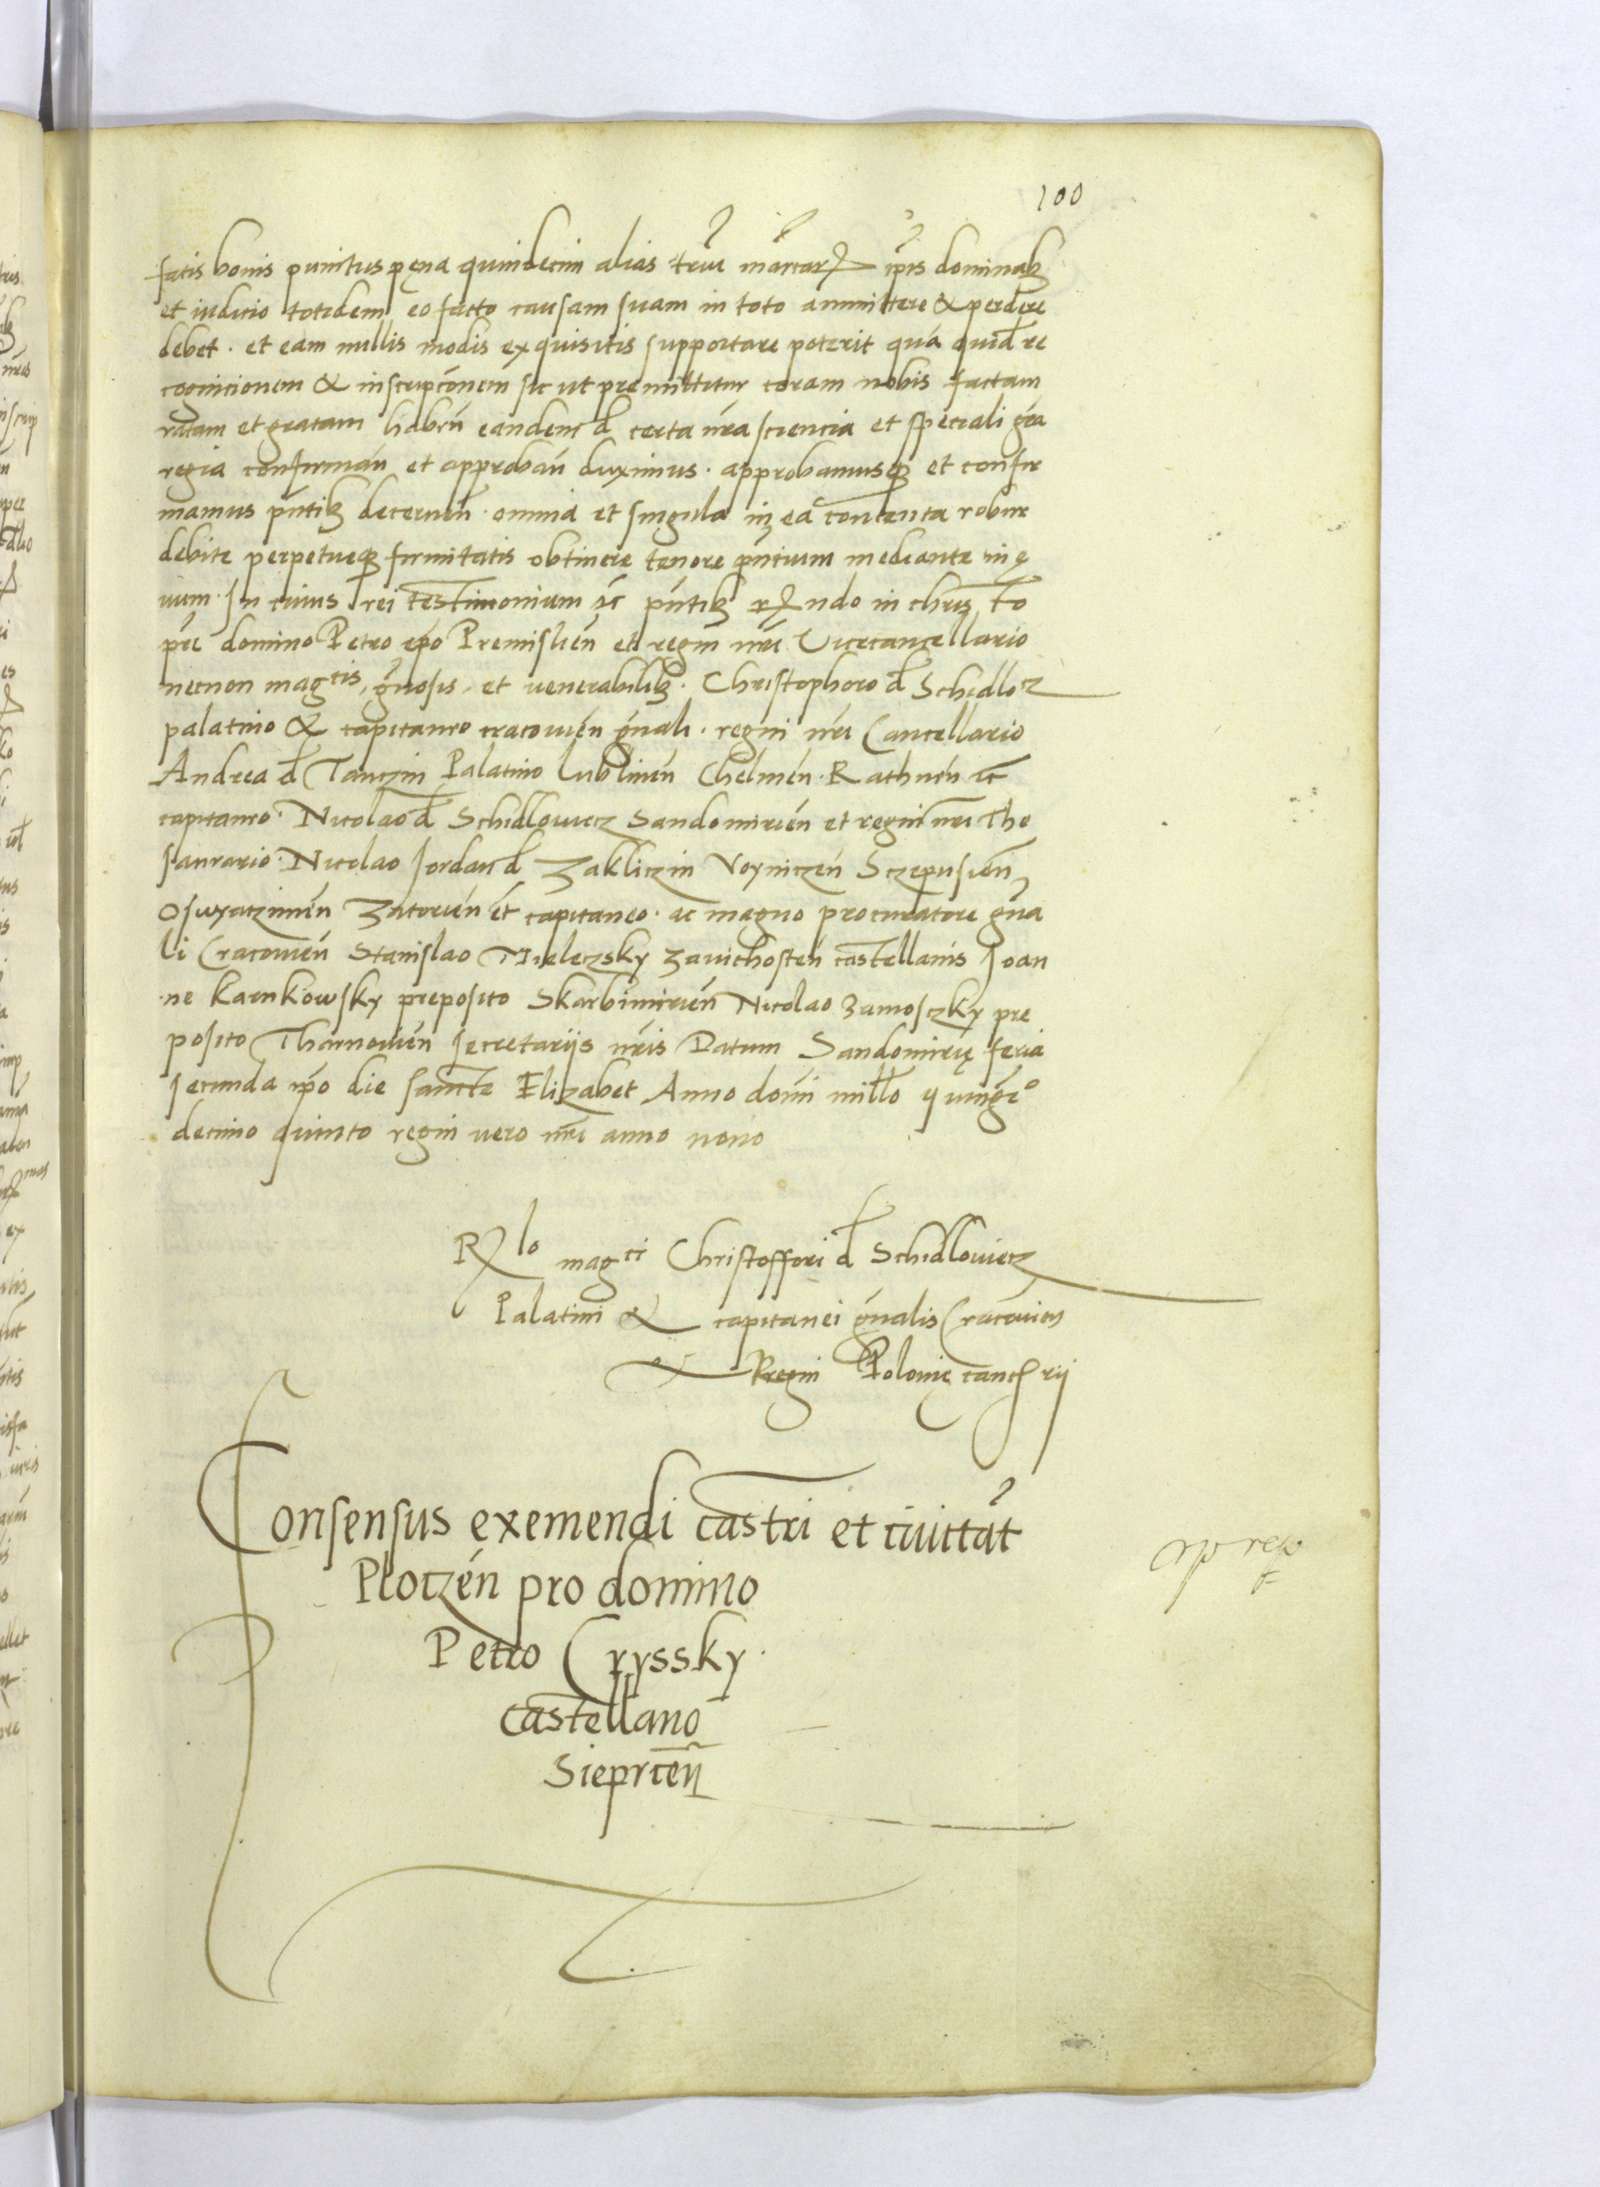 100
fatis bonis punitus pęna quindecim alias triū marcarꝝ ip̄is dominabꝫ
et iudicio totidem eo facto causam suam in toto ammittere & perdere
debet. et eam nullis modis exquisitis supportare poterit quā quidē re
cognicionem & inscripc̄onem sic ut premittitur coram nobis factam
ratam et gratam habeń eandem đ certa nr̄a sciencia et speciali gr̄a
regia confirmań et approbań duximus. approbamusqꝫ et confir
mamus pn̄tibꝫ decerneń. omnia et singula in ea contenta robur
debite perpetueqꝫ firmitatis obtinere tenore pn̄tium mediante in ę
uum. In cuius rei testimonium ꝛc̄ pn̄tibꝫ Rꝝndo in chr̄us, to
pr̄e domino Petro ep̄o Premislień et regni nr̄i Vicecancellario
necnon mag^cis, gn̄osis, et venerabilibꝫ. Christophoro đ Schidlocz
palatino & capitaneo cracovień gn̄ali. regni nr̄i Cancellario
Andrea đ Tanczin Palatino lublineń Chelmeń. Rathneń ꝛc̄
capitaneo. Nicolao đ Schidlowiecz Sandomirień et regni nr̄i The
saurario. Nicolao Jordan đ Zakliczin Voyniczeń Sczepusień
Oswyaczimeń Zatorień et capitaneo. ac magno procuratore gn̄a
li Cracovień Stanislao Mieleczsky Zavichosteń castellanis Joan
ne Karnkowsky preposito Skarbimirień Nicolao Zamosczky pre
posito Tharnovień secretariis nr̄is Datum Sandomirię feria
secunda ip̄o die sancte Elizabet Anno domī millo quingē^o
decimo quinto regni vero nr̄i anno nono
Rꝝ^lo mag^ci Christoffori đ Schidlowiecz
Palatini & capitanei gn̄alis Cracovień
& Regni Polonię cancꝝrii
Consensus exemendi castri et civitat̄
Plotzeń pro domino
Petro Cryssky.
castellano
Sieprceń